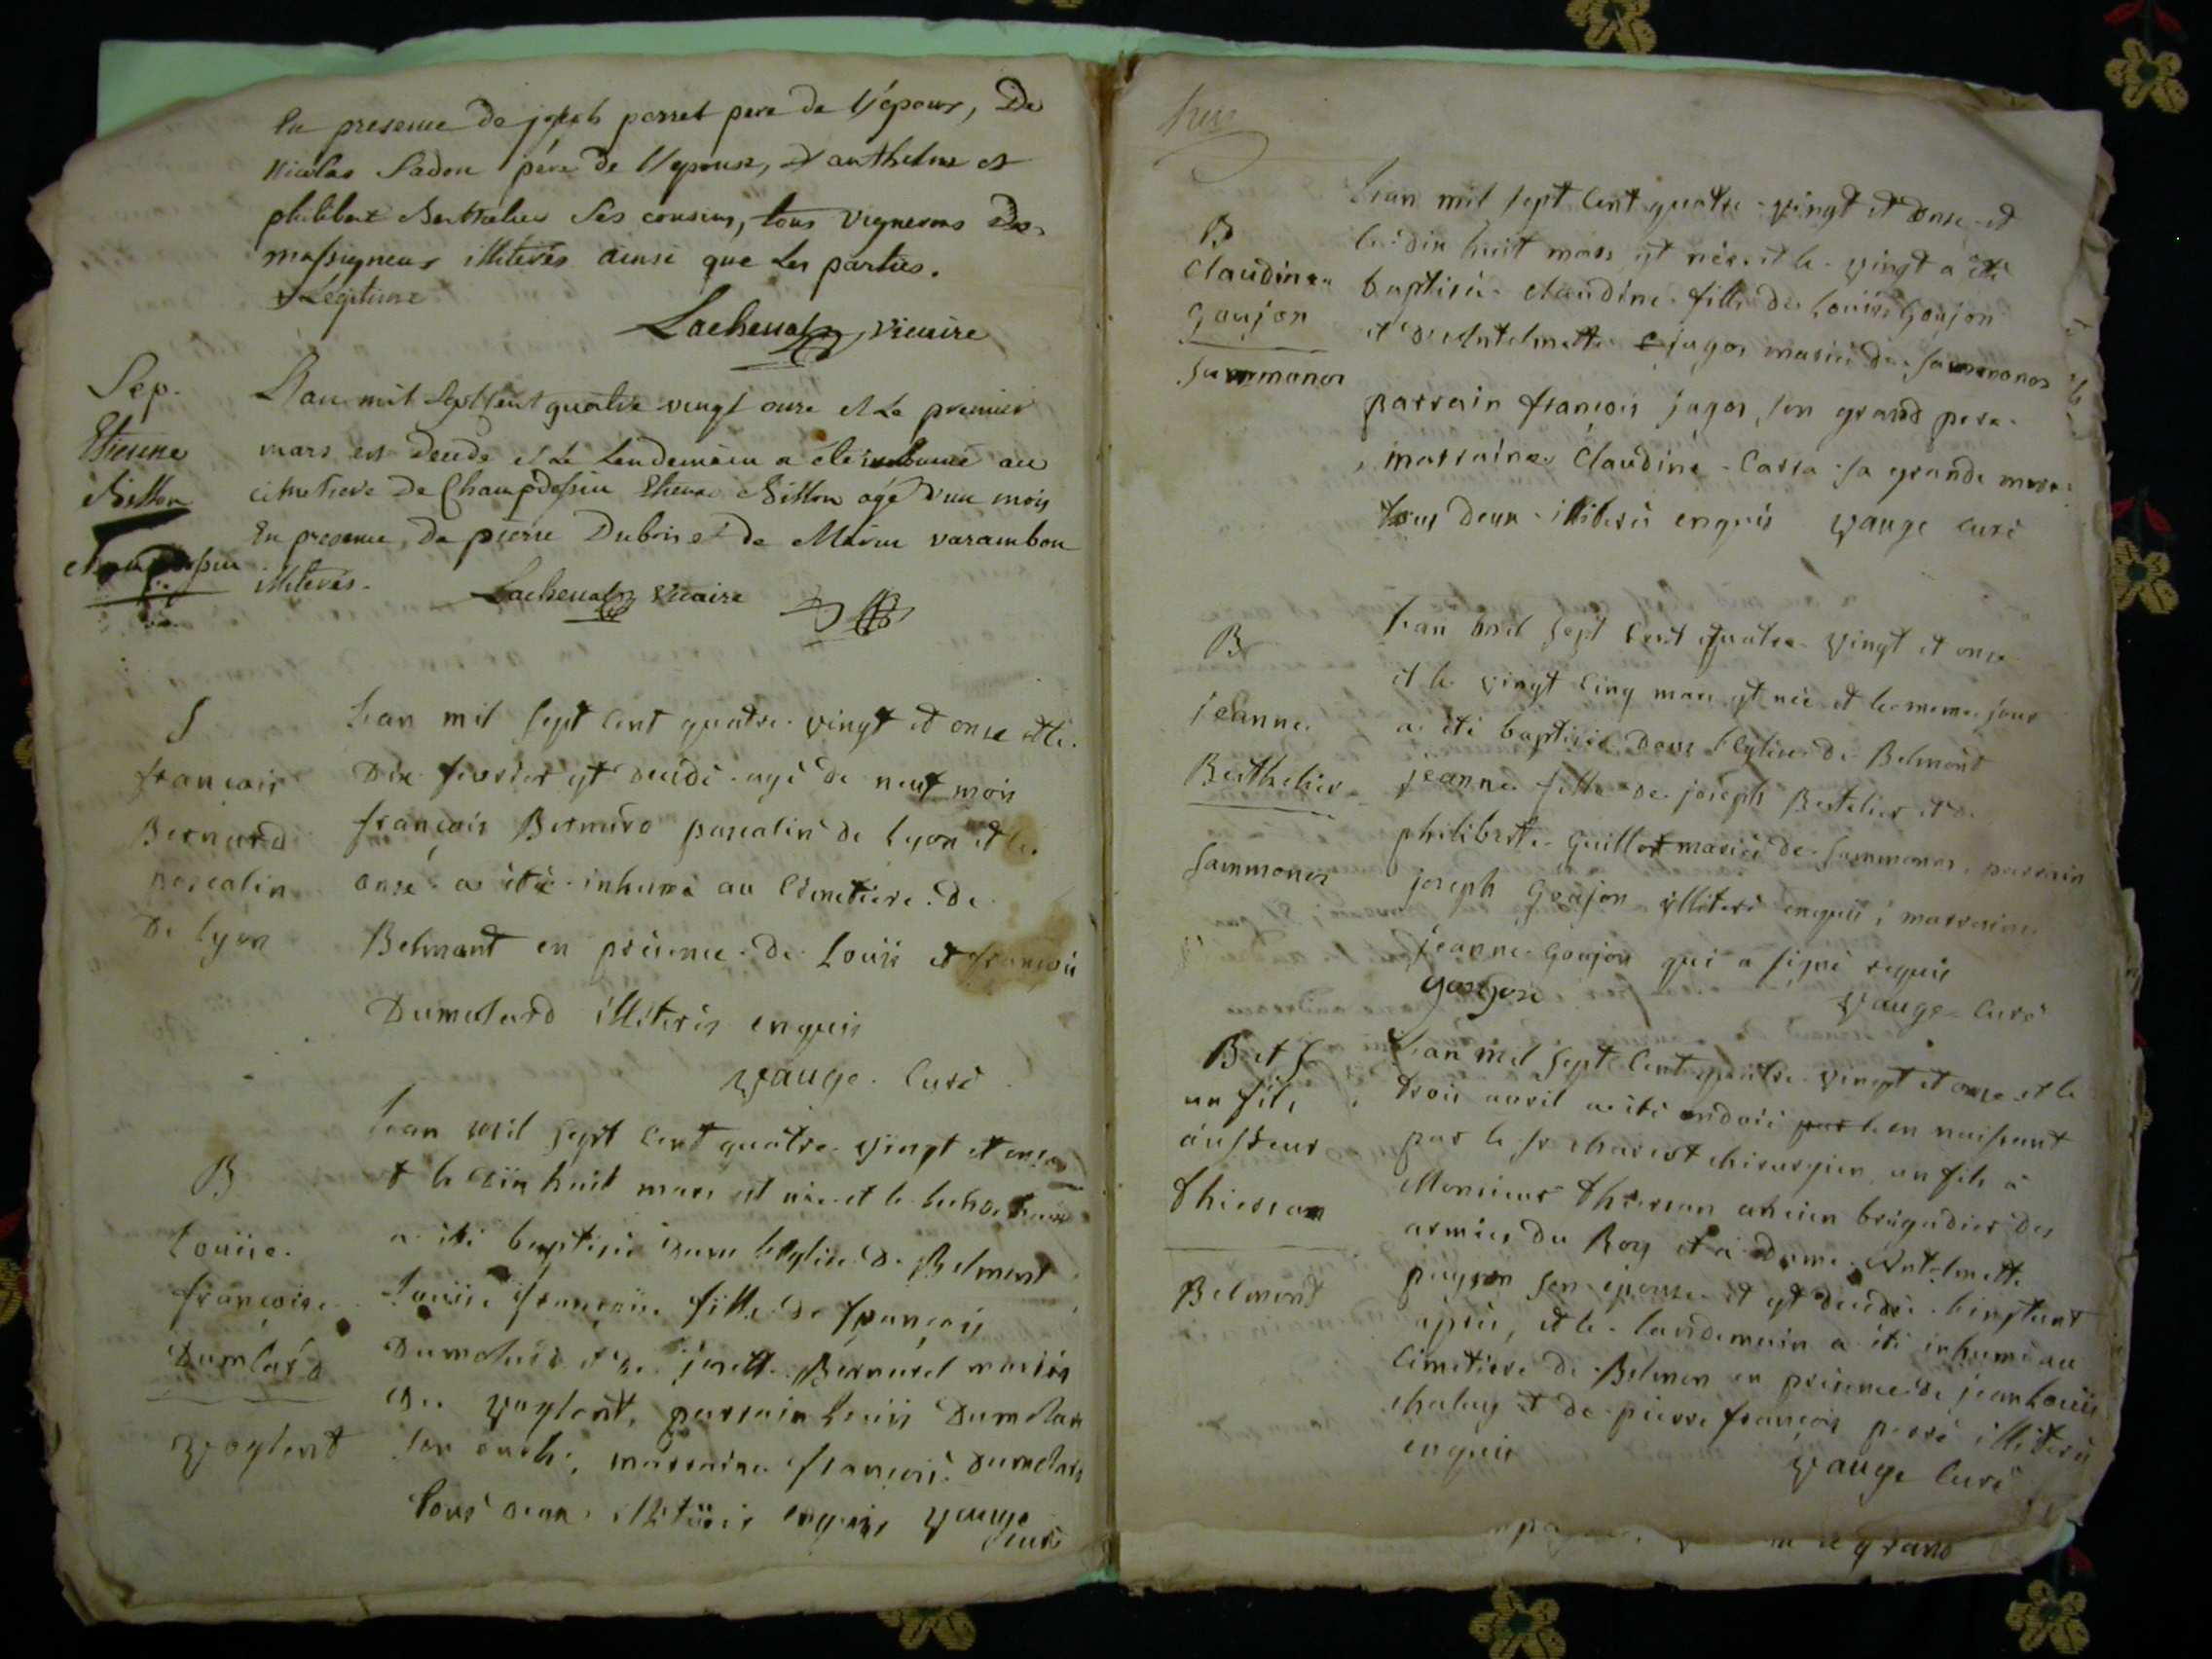 En presence de joseph perret pere de l'époux, De
Nicolas Ladon père de l'epouse, d'anthelme et
philibert Berthelier Ses cousins, tous vignerons de
massigneux illiterés ainsi que les parties.
Légitime
Lachenal vicaire
Sep.
Etienne
Billon
Champdossin
L'an mil sept cent quatre vingt onze et Le premier
mars est decedé et Le Lendemain a été inhumé au
cimetiere De Champdossin Etienne Billon agé d'un mois
En presence De pierre Dubois et de Marin varambon
illiterés. Lachenal vicaire
S
françois
Bernard
poscalin
De lyon
L'an mil sept cent quatre vingt et onse et le
Dix fevrier yt decedé agé de neuf mois
françois Bernard poscalin de Lyon et le
onse a été inhumé au Cimetiere de
Belmont en présence de Louis et françois
Dumolard illiterés enquis
vauge Curé
B
Louise
françoise
Dumlard
voglent
L'an mil sept cent quatre vingt et onse
et le dix huit mars est née et le
a été baptisée dans l'eglise De Belmont
Louise françoise fille de françois
Dumolard et de josette Bernard mariés
de voglent, parrain Louis Dumolar
son oncle, marraine françoise Dumolars
tous deux illiterés enquis vauge
curé
B
Claudine
Goujon
Sammonor
L'an mil sept cent quatre vingt et onse et
le dix huit mars yt née et le vingt a été
baptisée claudine fille de Louis Goujon
et d'Antelmette jugos mariés de Sammonos
parrain françois jugos son grand pere
marraine Claudine Carra sa grande mere
tous deux illiterés enquis vauge curé
B
jeanne
Berthelier
Sammonor
L'an mil sept cent quatre vingt et onse
et le vingt cinq mars yt née et le meme jour
a été baptisée dans l'Eglise de Belmont
jeanne fille de joseph Bertelier et de
philiberte Guillot mariés de Sammonos, parrain
joseph Goujon illiteré enquis, marraine
jeanne Goujon qui a signé requis
goujon
vauge Curé
B et S
un fils
à monsieur
thiersan
Belmont
L'an mil sept Cent quatre vingt et onse et le
trois avril a été ondoié par le en naissant
par le sr charcot chirurgien un fils à
Monsieur thiersan ancien brigadier des
armées du Roy et à dame Antelmette
peysson son epouse et yt decedé l'instant
après, et le landemain a été inhumé au
Cimetiere de Belmon en présence de jean Louis
chaley et de pierre françois perré illiterés
enquis
vauge Curé